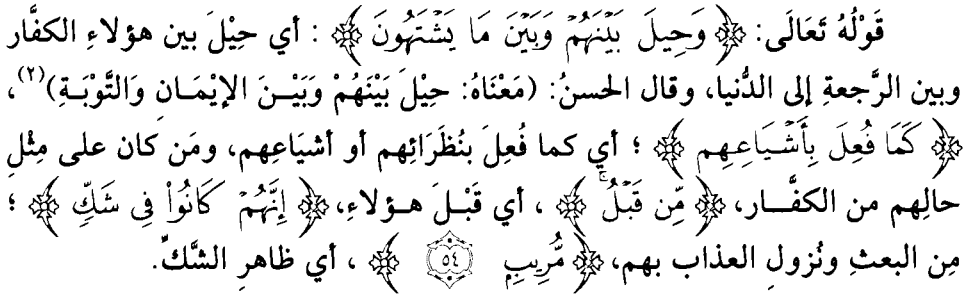 قَوْلُهُ تَعَالَى: ﴿ وَحِيلَ بَيْنَهُمْ وَبَيْنَ مَا يَشْتَهُونَ ﴾ : أي حِيْلَ بين هؤلاءِ الكفَّار
وبين الرَّجعةِ إلى الدُّنيا، وقال الحسنُ: (مَعْنَاهُ: حِيْلَ بَيْنَهُمْ وَبَيْـنَ الإيْمَـانِ وَالتَّوْبَـةِ)(٢)،
﴿ كَمَا فُعِلَ بِأَشْيَاعِهِم ﴾ ؛ أي كما فُعِلَ بنُظَرَائِهم أو أشيَاعِهم، ومَن كان على مِثْلِ
حالِهم من الكفَّـار، ﴿ مِّن قَبْلُ ۚ ﴾ ، أي قَبْـلَ هـؤلاءِ، ﴿ إِنَّهُمْ كَانُواْ فِى شَكٍّ ﴾ ؛
مِن البعثِ ونُزولِ العذاب بهم، ﴿ مُّرِيبٍ ٥٤ ﴾ ، أي ظاهرِ الشَّكِّ.